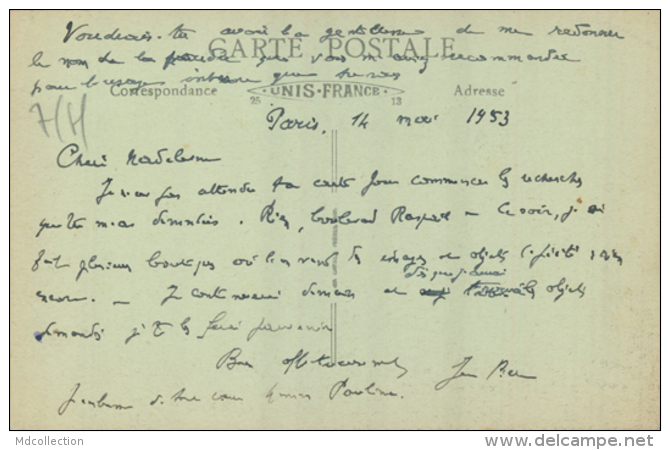 Voudrais-tu avoir la gentillesse de me redonner
le nom de la poudre que vous m'aviez recommandée
pour l'usage interne que tu sais
CARTE POSTALE
Correspondance UNIS-FRANCE Adresse
25 13
7/H
Paris, 14 mai 1953
Chère Madeleine
Je n'ai pas attendu ta carte pour commencer les recherches
que tu m'as demandées. Rien, boulevard Raspail - Ce soir, j'ai
fait plusieurs boutiques où l'on vend des images et objets de piété rien
encore. - Je continuerai demain et dès que j'aurai les objets
demandés je te les ferai parvenir
Bien affectueusement
J'embrasse de tout coeur Pauline.
Mdcollection
www.delcampe.net